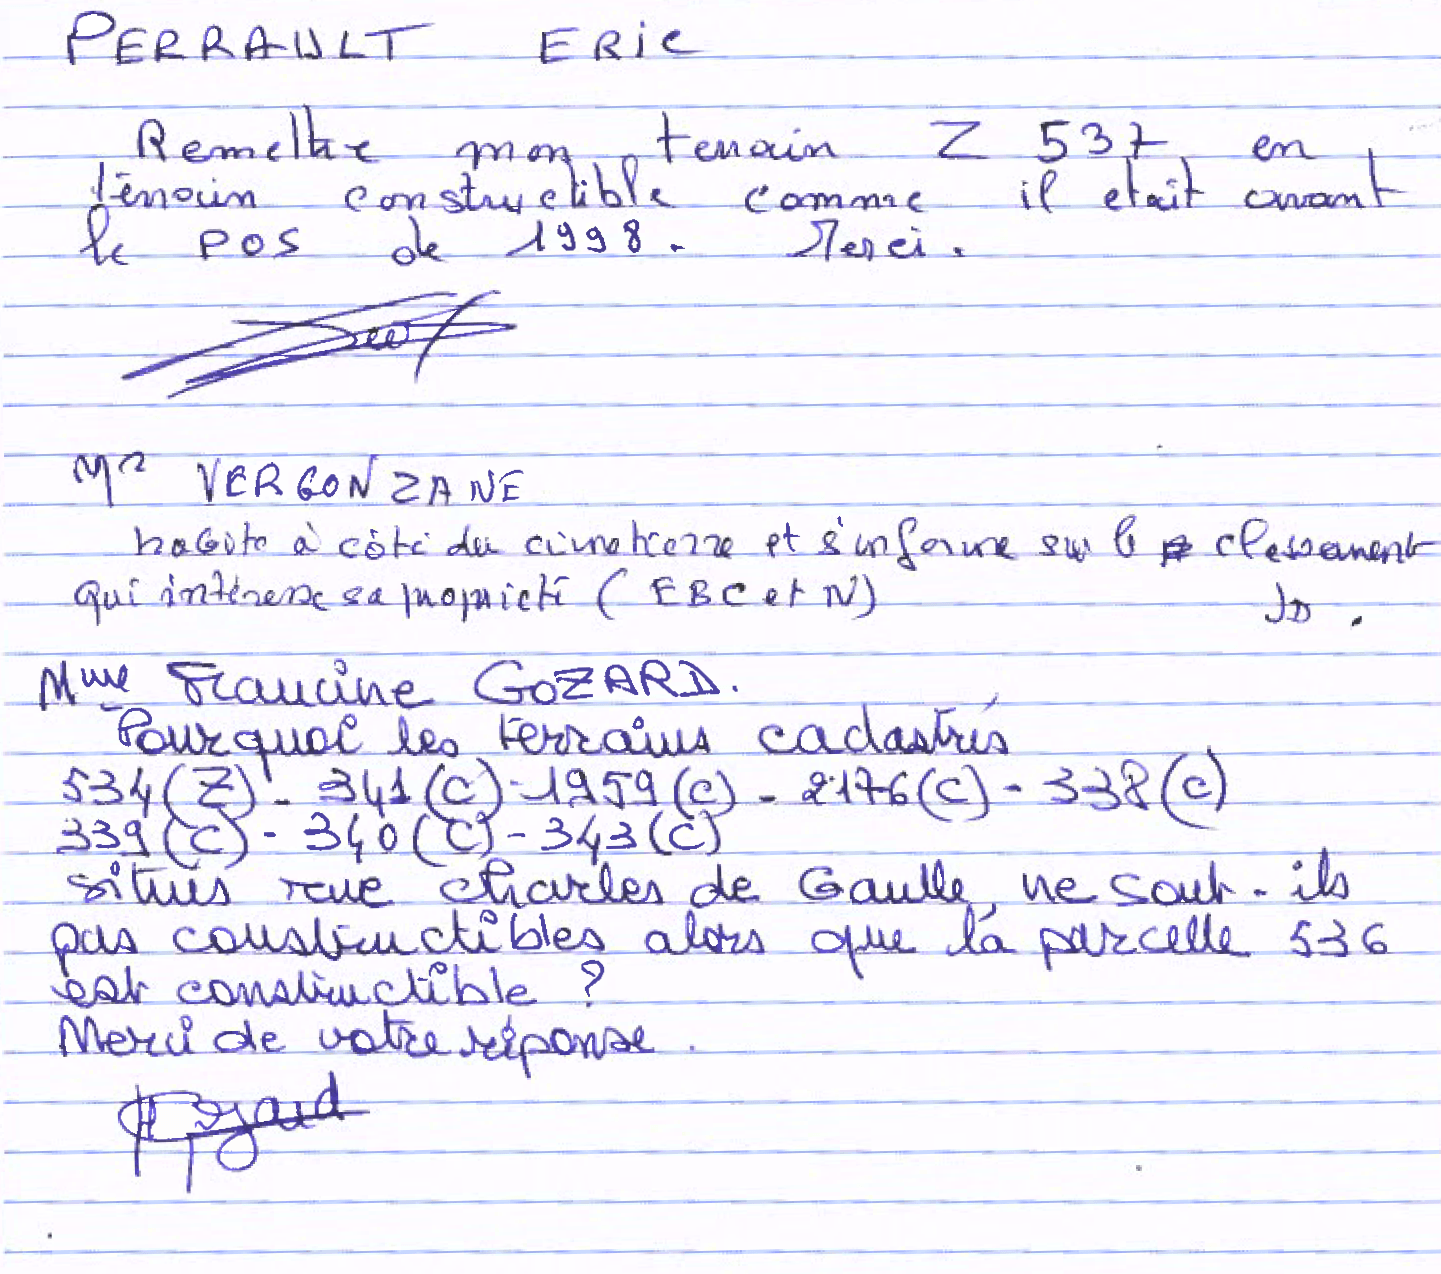 PERRAULT ERIC
Remettre mon terrain Z 537 en
terrain constructible comme il etait avant
le POS de 1998. Merci.
Mr VERGONZANE
habite à côté du cimetierre et s'informe sur le classement
qui intéresse sa propriété (EBC et N) JD.
Mme Francine GOZARD.
Pourquoi les terrains cadastrés
534(Z) - 341(C) - 1959(C) - 2176(C) - 338(C)
339(C) - 340(C) - 343(C)
situés rue Charles de Gaulle, ne sont-ils
pas constructibles alors que la parcelle 536
est constructible ?
Merci de votre réponse.
Gozard